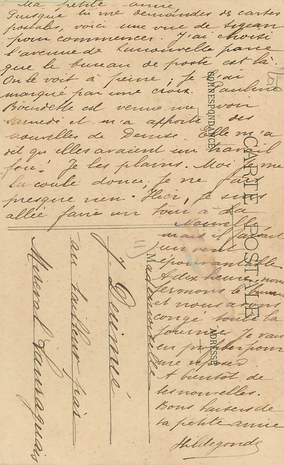 Ma petite amie,
Puisque tu me demandes des cartes
postales, voici une vue de
pour commencer. J'ai choisi
l'avenue de Lamouvelle parce
que le bureau de poste est là.
On le voit à peine, je l'ai
marqué par une croix. Pauline
est venue me voir
samedi et m'a apporté des
nouvelles de Denise. Elle m'a
dit qu'elles avaient un travail
fou! Je les plains. Moi je me
la coule douce. Je ne fais
presque rien. Hier, je suis
allée faire un tour à La
Nouvelle
mais il faisait
un vent
épouvantable
A dix heures nous
fermons le bureau
et nous avons
congé toute la
journée. Je vais
en profiter pour
me reposer.
A bientôt de
tes nouvelles.
Bons baisers de
ta petite amie
Hildegonde
CARTE POSTALE
CORRESPONDANCE
ADRESSE
Mademoiselle
J
au tailleur